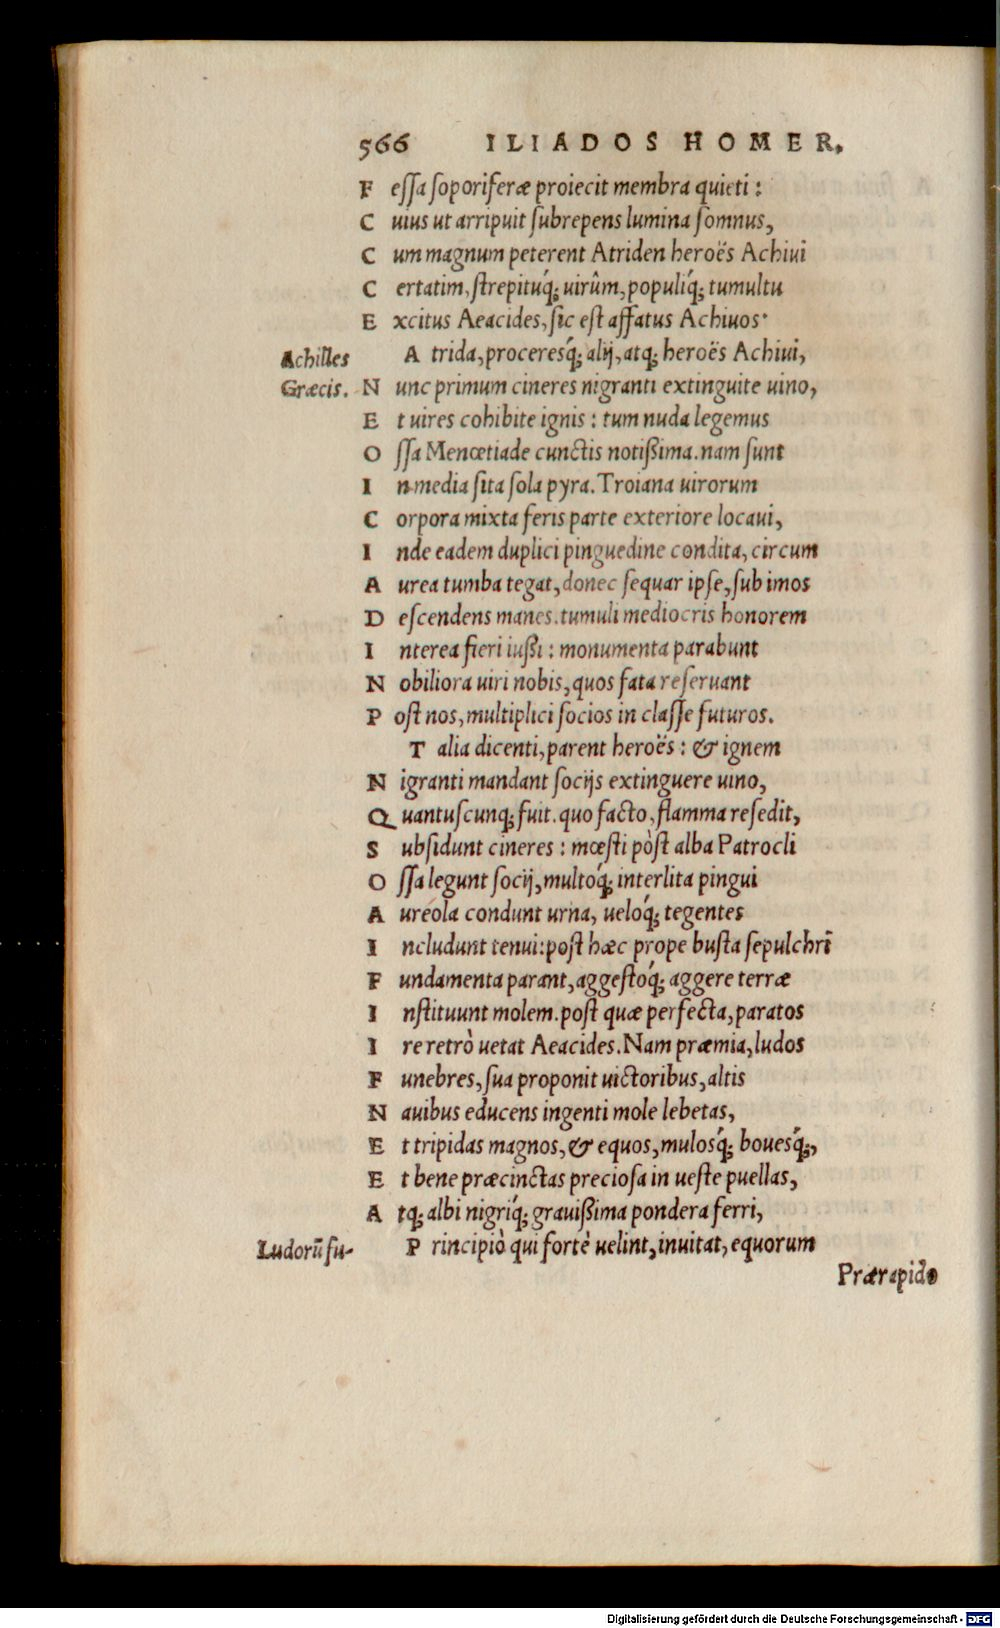 566 ILIADOS HOMER.
F essa soporiferæ proiecit membra quieti :
C uius ut arripuit subrepens lumina somnus,
C um magnum peterent Atriden heroës Achiui
C ertatim, strepituq́; uirûm, populiq́; tumultu
E xcitus Aeacides, sic est affatus Achiuos·
Achilles Græcis.
A trida, proceresq́; alij, atq; heroës Achiui,
N unc primum cineres nigranti extinguite uino,
E t uires cohibite ignis : tum nuda legemus
O ssa Menœtiade cunctis notißima. nam sunt
I n media sita sola pyra. Troiana uirorum
C orpora mixta feris parte exteriore locaui,
I nde eadem duplici pinguedine condita, circum
A urea tumba tegat, donec sequar ipse, sub imos
D escendens manes. tumuli mediocris honorem
I nterea fieri iußi : monumenta parabunt
N obiliora uiri nobis, quos fata reseruant
P ost nos, multiplici socios in classe futuros.
T alia dicenti, parent heroës : & ignem
N igranti mandant socijs extinguere uino,
Q uantuscunq; fuit. quo facto, flamma resedit,
S ubsidunt cineres : mœsti pòst alba Patrocli
O ssa legunt socij, multoq́; interlita pingui
A uréola condunt urna, ueloq́; tegentes
I ncludunt tenui: post hæc prope busta sepulchri
F undamenta parant, aggestoq́; aggere terræ
I nstituunt molem. post quæ perfecta, paratos
I re retrò uetat Aeacides. Nam præmia, ludos
F unebres, sua proponit uictoribus, altis
N auibus educens ingenti mole lebetas,
E t tripidas magnos, & equos, mulosq́; bouesq́;,
E t bene præcinctas preciosa in ueste puellas,
A tq; albi nigriq́; grauißima pondera ferri,
Ludorũ fu-
P rincipiò qui fortè uelint, inuitat, equorum
Prærapido
Digitalisierung gefördert durch die Deutsche Forschungsgemeinschaft - DFG